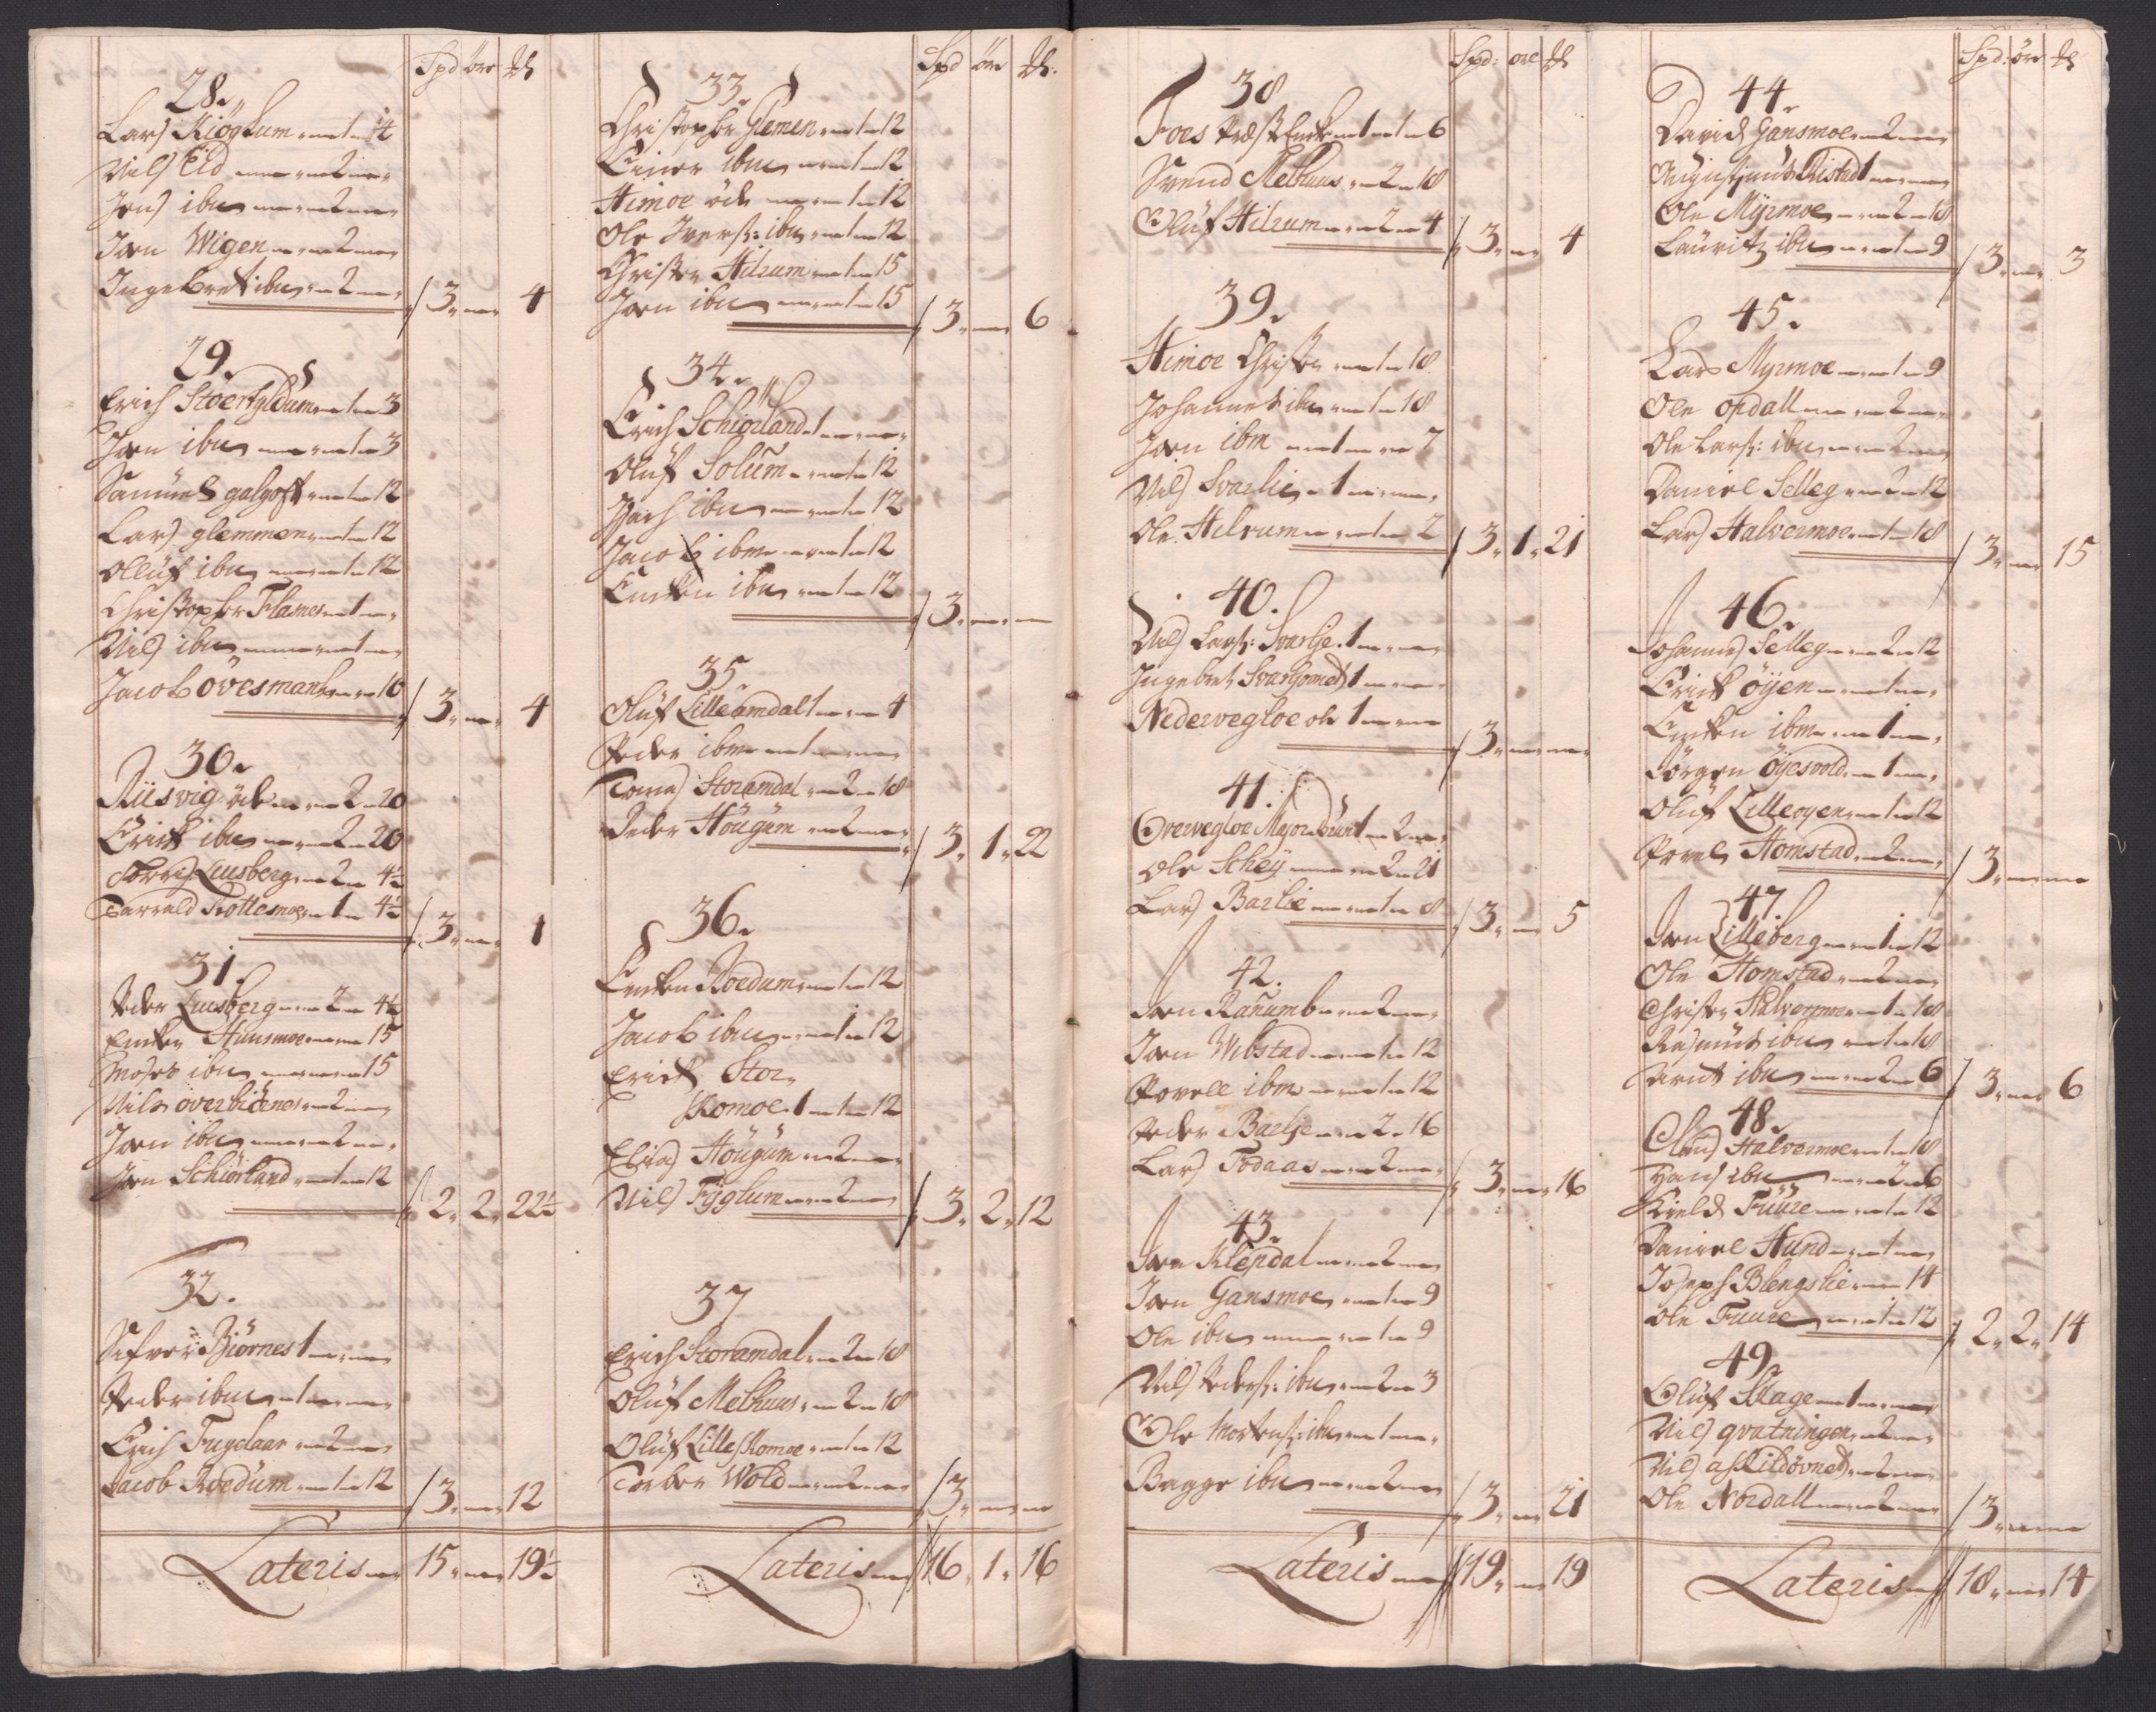 Spd öre ℔
28.
Lars Kiöglum 1 14
Nils Eld 2
Jens ibm 2
Joen Wigen 2
Ingebret ibm 2 3 4
29.
Erich Stoerfyldum 1 3
Joen ibm 1 3
Samuel galgoft 1 12
Lars glemmen 1 12
Olluf ibm 1 12
Christopher Flames 1
Nils ibm 1
Jacob övesmark 10 3 4
30.
Riisvig öde 2 20
Erich ibm 2 20
Luusberg 2 4½
Tarrald Rottesmoe 1 4½ 3 1
31.
Peder Luusberg 2 4½
Encken Hunsmoe 15
Moses ibm 15
Nils overbiörnes 2
Joen ibm 2
Joen Schiörland 1 12
2 2 22½
32.
Sefver Biörnes 1
Peder ibm 1
Erich Fugelaar 2
Jacob Roedum 1 12 3 12
Lateris 15 19½
Spd öre ℔.
33.
Christopher Glemen 1 12
Einer ibm 1 12
Himoe öde 1 12
Ole Iverss: ibm 1 12
Christen Hilrum 1 15
Joen ibm 1 15 3 6
34.
Erich Schiörland 1
Oluf Solum 1 12
Isach ibm 1 12
Jacob ibm 1 12
Encken ibm 1 12
3
35.
Oluf Lilleamdal 1 4
Peder ibm 1
Tomas Storamdal 2 18
Peder Hougum 2 3 1 22
36.
Encken Roedum 1 12
Jacob ibm 1 12
Erich Stor
Komoe 1 12
Elias Hougum 2
Nils Fyglum 2 3 2 12
37
Erich Storamdal 2 18
Oluf Melhuus 2 18
Oluf Lille Komoe 1 12
Torber Wold 2 3
Lateris 16 1 16
Spd: öre ℔
38
Foes Præst Encke 1 6
Svend Melhuus 2 18
Oluf Hilrum 2 4 3 4
39.
Himoe Christen 1 18
Johannes ibm 1 18
Joen ibm 1 7
Nils Svarlie 1
Ole Hilrum 1 2 3 1 21
40.
Nils Larss: Svarlie 1
Ingebret Svarhomet 1
Nedervegloe ole 1 3
41.
Overvegloe Major Brun 1 2
Ole Schey 2 21
Lars Barlie 1 8 3 5
42.
Joen Ranumb 2
Joen Wibstad 1 12
Povell ibm 1 12
Peder Barlie 2 16
Lars Todaas 2 3 16
43.
Joen Klepdal 2
Joen Gansmoe 1 9
Ole ibm 1 9
Nils Pederss: ibm 2 3
Ole Mortenss: ibm 1
Bagge ibm 2 3 21
Lateris 19 19
Spd: öre ℔
44.
David Gansmoe 2
Augustinus Ristad 1
Ole Myrmoe 2 18
Lauritz ibm 1 9 3 3
45.
Lars Myrmoe 1 9
Ole opdall 2
Ole Larss: ibm 2
Daniel Selleg 2 12
Lars Halvermoe 1 18 3 15
46.
Johannes Selleg 2 12
Erich öyen 1
Encken ibm 1
Jörgen Öyesvold 1
Oluf Lilleoyen 1 12
Povel Homstad 2 3
47.
Joen Lilleberg 1 12
Ole Homstad 2
Christen Halvermoe 1 18
Rasmus ibm 1 18
Arent ibm 2 6 3 6
48.
Claus Halvermoe 1 18
Hans ibm 2 6
Kield Fuure 1 12
Daniel Hund 1
Joseph Blengslie 14
Ole Fuure 1 12 2 2 14
49.
Oluf Klage 1
Nils qvatningen 2
Nils askildövnet 2
Ole Nordall 2 3
Lateris 18 14